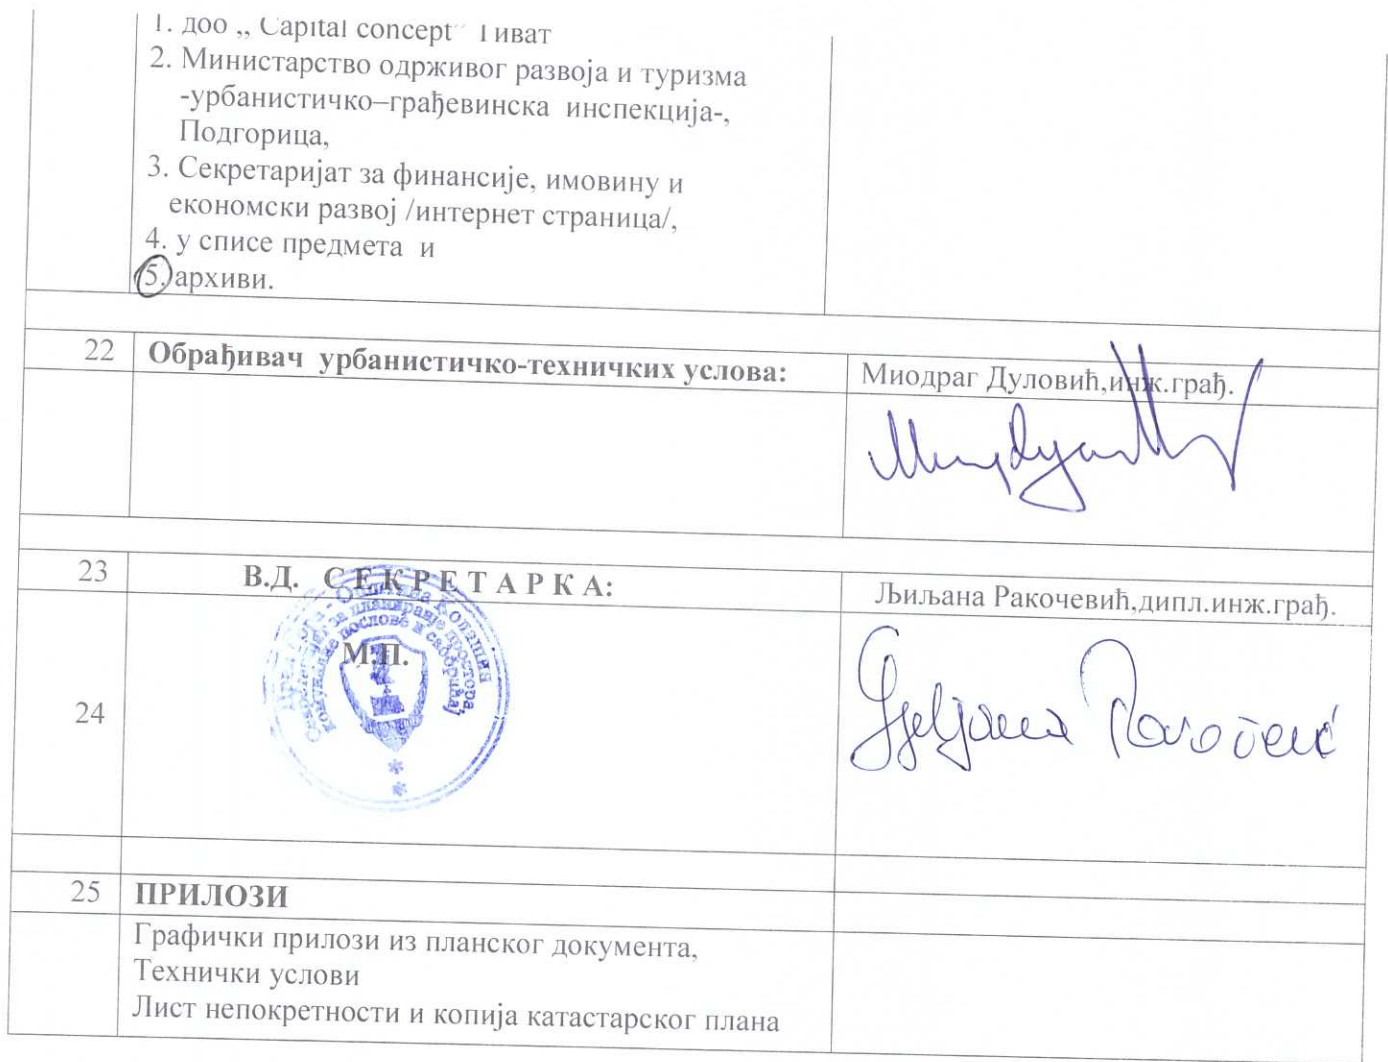 1. доо ,, Capital concept“ Тиват
2. Министарство одрживог развоја и туризма
-урбанистичко–грађевинска инспекција-,
Подгорица,
3. Секретаријат за финансије, имовину и
економски развој /интернет страница/,
4. у списе предмета и
5. архиви.
22 Обрађивач урбанистичко-техничких услова: Миодраг Дуловић,инж.грађ.
23 В.Д. С Е К Р Е Т А Р К А: Љиљана Ракочевић,дипл.инж.грађ.
Црна Гора - Општина Колашин
Секретаријат за планирање простора
комуналне послове и саобраћај
М.П.
24
Ljiljana Rakočević
25 ПРИЛОЗИ
Графички прилози из планског документа,
Технички услови
Лист непокретности и копија катастарског плана